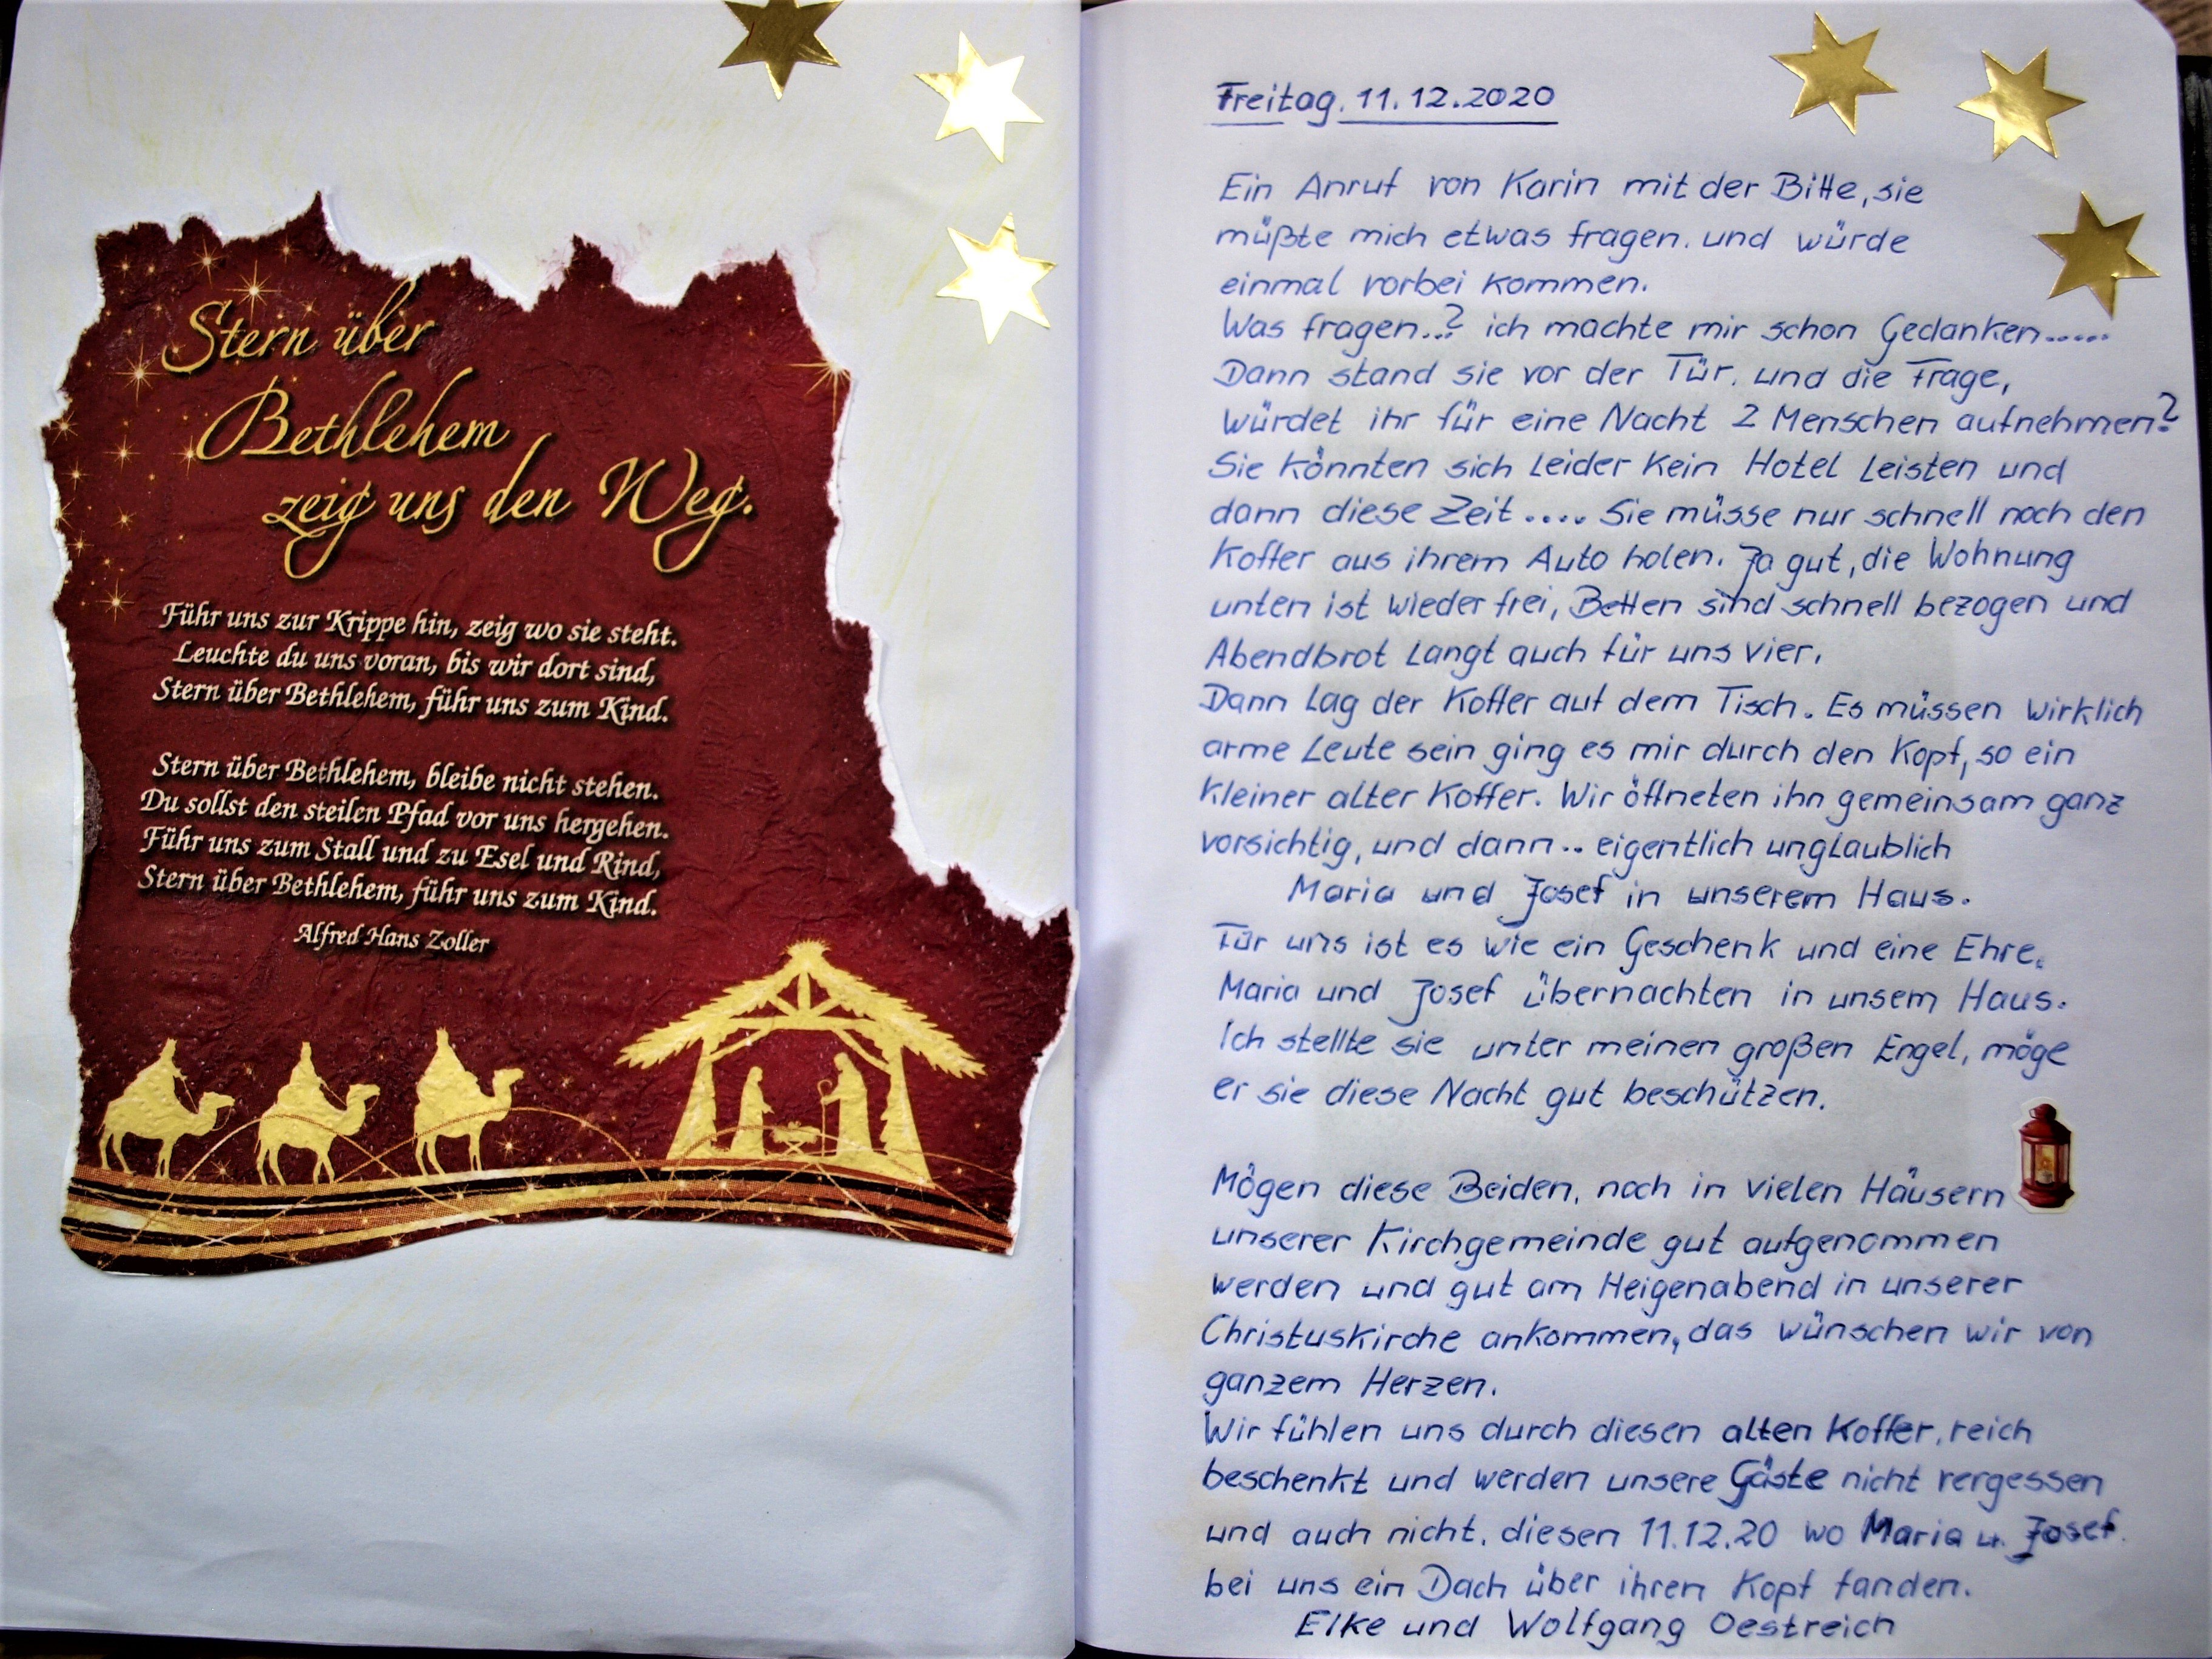 Stern über
Bethlehem
zeig uns den Weg.
Führ uns zur Krippe hin, zeig wo sie steht.
Leuchte du uns voran, bis wir dort sind,
Stern über Bethlehem, führ uns zum Kind.
Stern über Bethlehem, bleibe nicht stehen.
Du sollst den steilen Pfad vor uns hergehen.
Führ uns zum Stall und zu Esel und Rind,
Stern über Bethlehem, führ uns zum Kind.
Alfred Hans Zoller
Freitag, 11.12.2020
Ein Anruf von Karin mit der Bitte, sie
müßte mich etwas fragen. und würde
einmal vorbei kommen.
Was fragen..? ich machte mir schon Gedanken.....
Dann stand sie vor der Tür. und die Frage,
würdet ihr für eine Nacht 2 Menschen aufnehmen?
Sie könnten sich leider kein Hotel leisten und
dann diese Zeit.... Sie müsse nur schnell noch den
Koffer aus ihrem Auto holen. Ja gut, die Wohnung
unten ist wieder frei, Betten sind schnell bezogen und
Abendbrot langt auch für uns vier.
Dann lag der Koffer auf dem Tisch. Es müssen wirklich
arme Leute sein ging es mir durch den Kopf, so ein
kleiner alter Koffer. Wir öffneten ihn gemeinsam ganz
vorsichtig, und dann.. eigentlich unglaublich
Maria und Josef in unserem Haus.
Für uns ist es wie ein Geschenk und eine Ehre.
Maria und Josef übernachten in unsem Haus.
Ich stellte sie unter meinen großen Engel, möge
er sie diese Nacht gut beschützen.
Mögen diese Beiden, noch in vielen Häusern
unserer Kirchgemeinde gut aufgenommen
werden und gut am Heigenabend in unserer
Christuskirche ankommen, das wünschen wir von
ganzem Herzen.
Wir fühlen uns durch diesen alten Koffer, reich
beschenkt und werden unsere Gäste nicht vergessen
und auch nicht, diesen 11.12.20 wo Maria u. Josef.
bei uns ein Dach über ihren Kopf fanden.
Elke und Wolfgang Oestreich